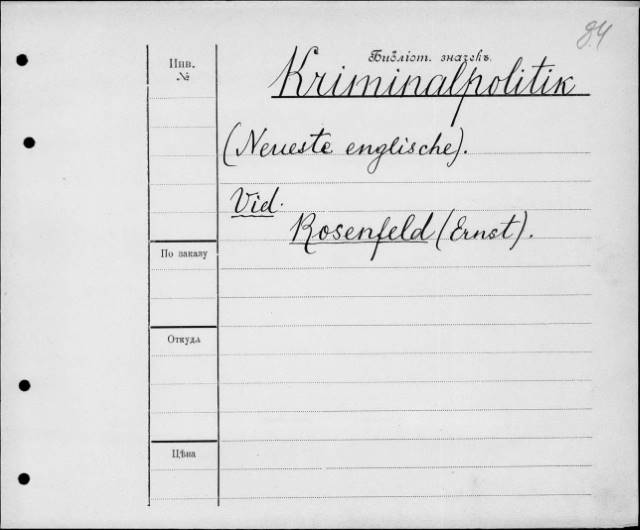 84
Библіот. значекъ.
Инв.
№
Kriminalpolitik
(Neueste englische).
Vid.
Rosenfeld (Ernst).
По заказу
Откуда
Цѣна